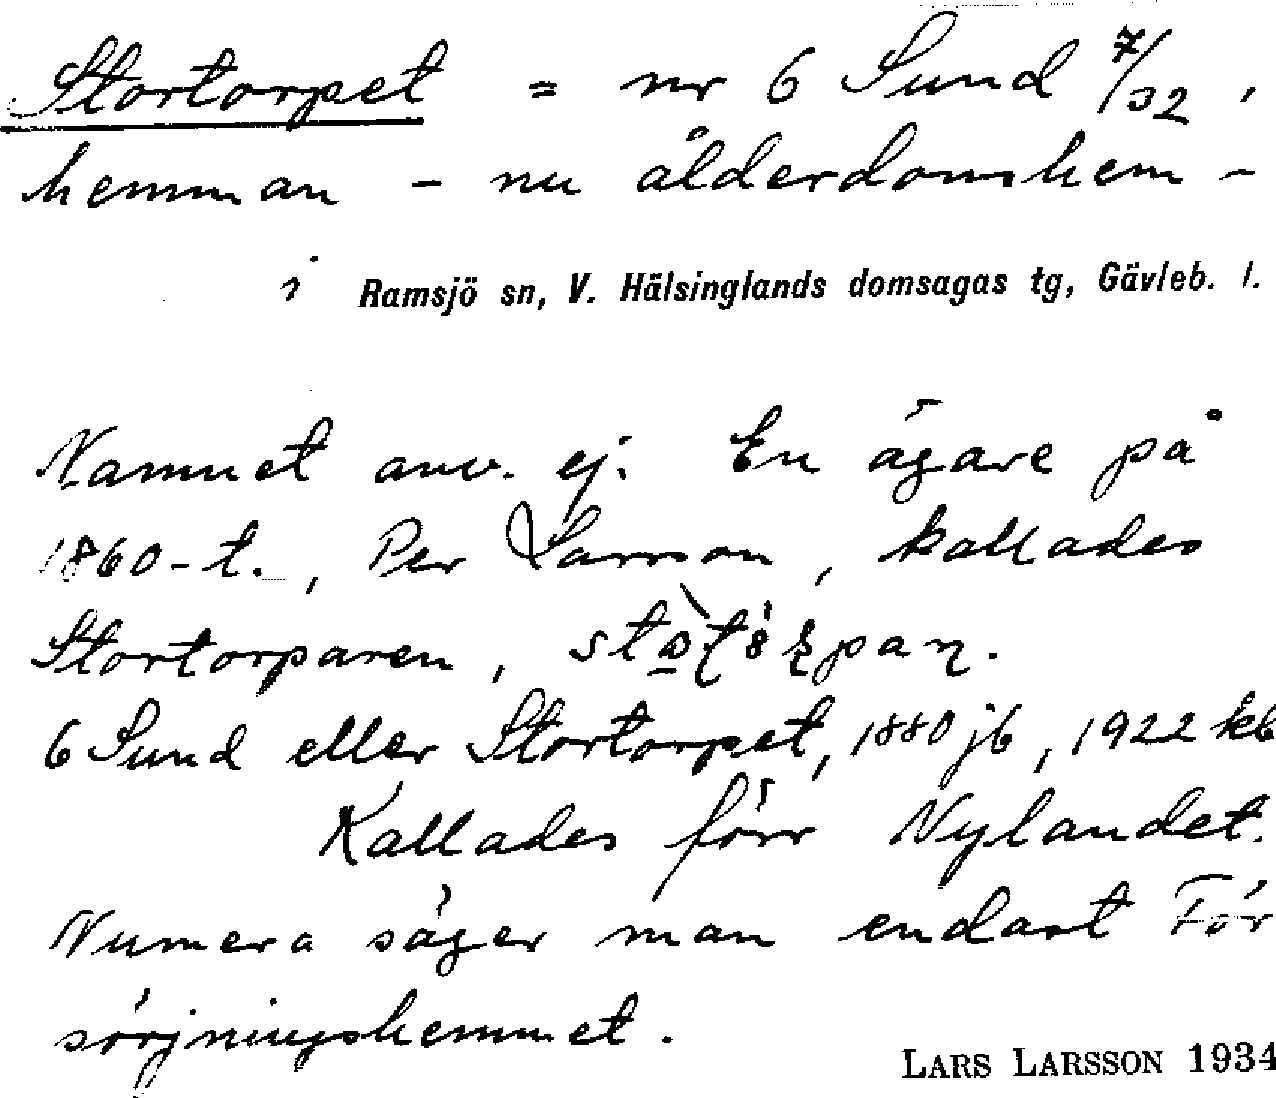 Stortorpet = nr 6 Sund 7/32,
hemman - nu ålderdomshem -
i Ramsjö sn, V. Hälsinglands domsagas tg, Gävleb. l.
Namnet anv. ej. En ägare på
1860-t., Per Larsson, kallades
Stortorparen,
6 Sund eller Stortorpet, 1880 jb, 1922 kb
Kallades förr Nylandet.
Numera säger man endast För
sörjningshemmet.
LARS LARSSON 1934